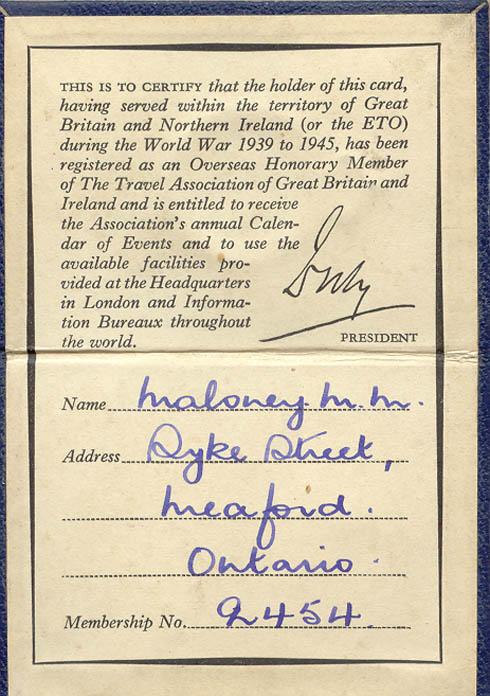 THIS IS TO CERTIFY that the holder of this card,
having served within the territory of Great
Britain and Northern Ireland (or the ETO)
during the World War 1939 to 1945, has been
registered as an Overseas Honorary Member
of The Travel Association of Great Britain and
Ireland and is entitled to receive
the Association's annual Calen-
dar of Events and to use the
available facilities pro-
vided at the Headquarters
in London and Informa-
tion Bureaux throughout
the world.
PRESIDENT
Name Maloney. M. M.
Address Syke Street,
Meaford.
Ontario.
Membership No. 2454.